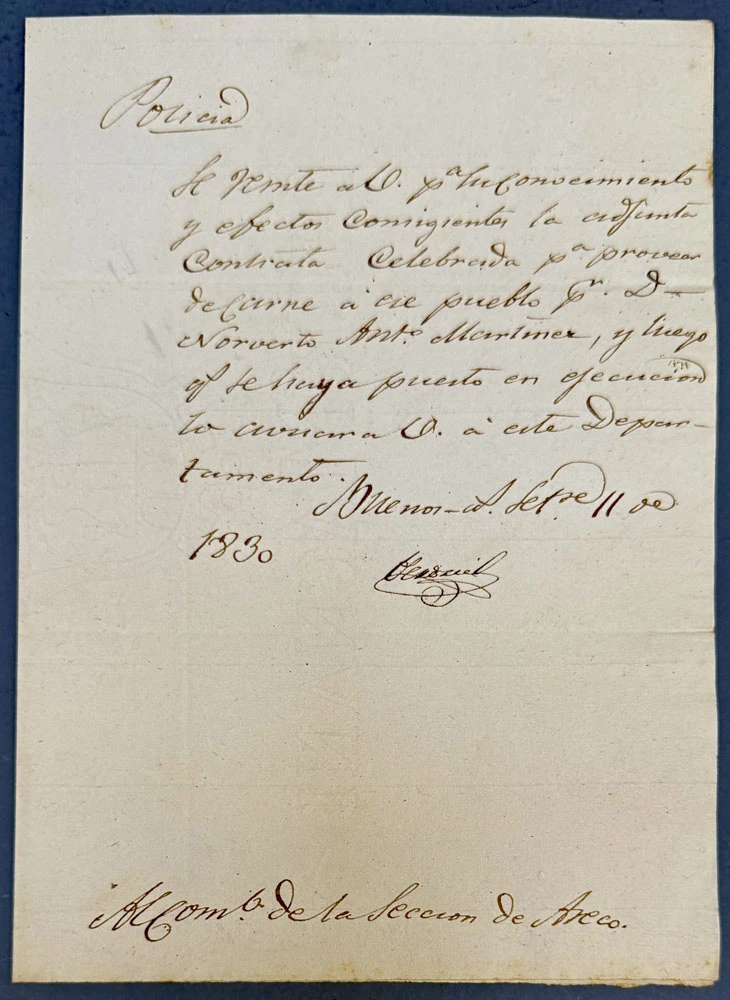 Policia
Se remite a V. pª. su conocimiento
y efectos consigientes la adjunta
Contrata Celebrada pª proveer
de Carne à ese pueblo pr. D–
Norverto Antº. Martinez, y luego
qe se haya puesto en ejecucion
lo avisara V. à este Depar–
tamento.
Buenos–As. Setre 11 de
1830
Al Comº. de la Seccion de Areco.